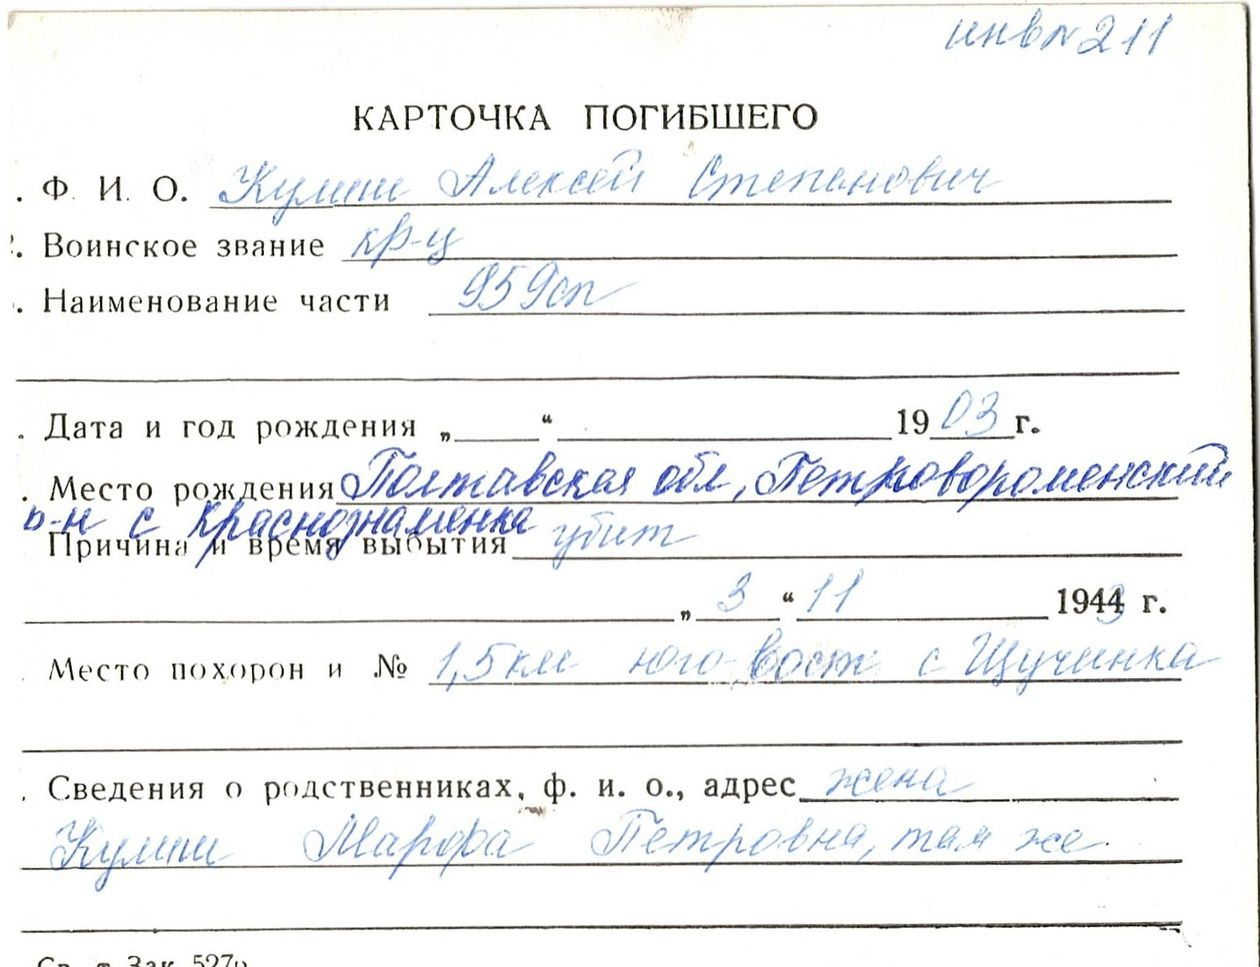 инв№211
КАРТОЧКА ПОГИБШЕГО
. Ф. И. О. Алексей Степанович
. Воинское звание кр-ц
. Наименование части 959сп
. Дата и год рождения „ “ 1903 г.
. Место рождения Полтавская обл, Петровороменский
р-н с Краснознаменка
Причина и время выбытия убит
„ 3 “ 11 1943 г.
Место похорон и № 1,5км юго-вост с Щучинка
. Сведения о родственниках, ф. и. о., адрес жена
Марфа Петровна, там же.
Зак. 527